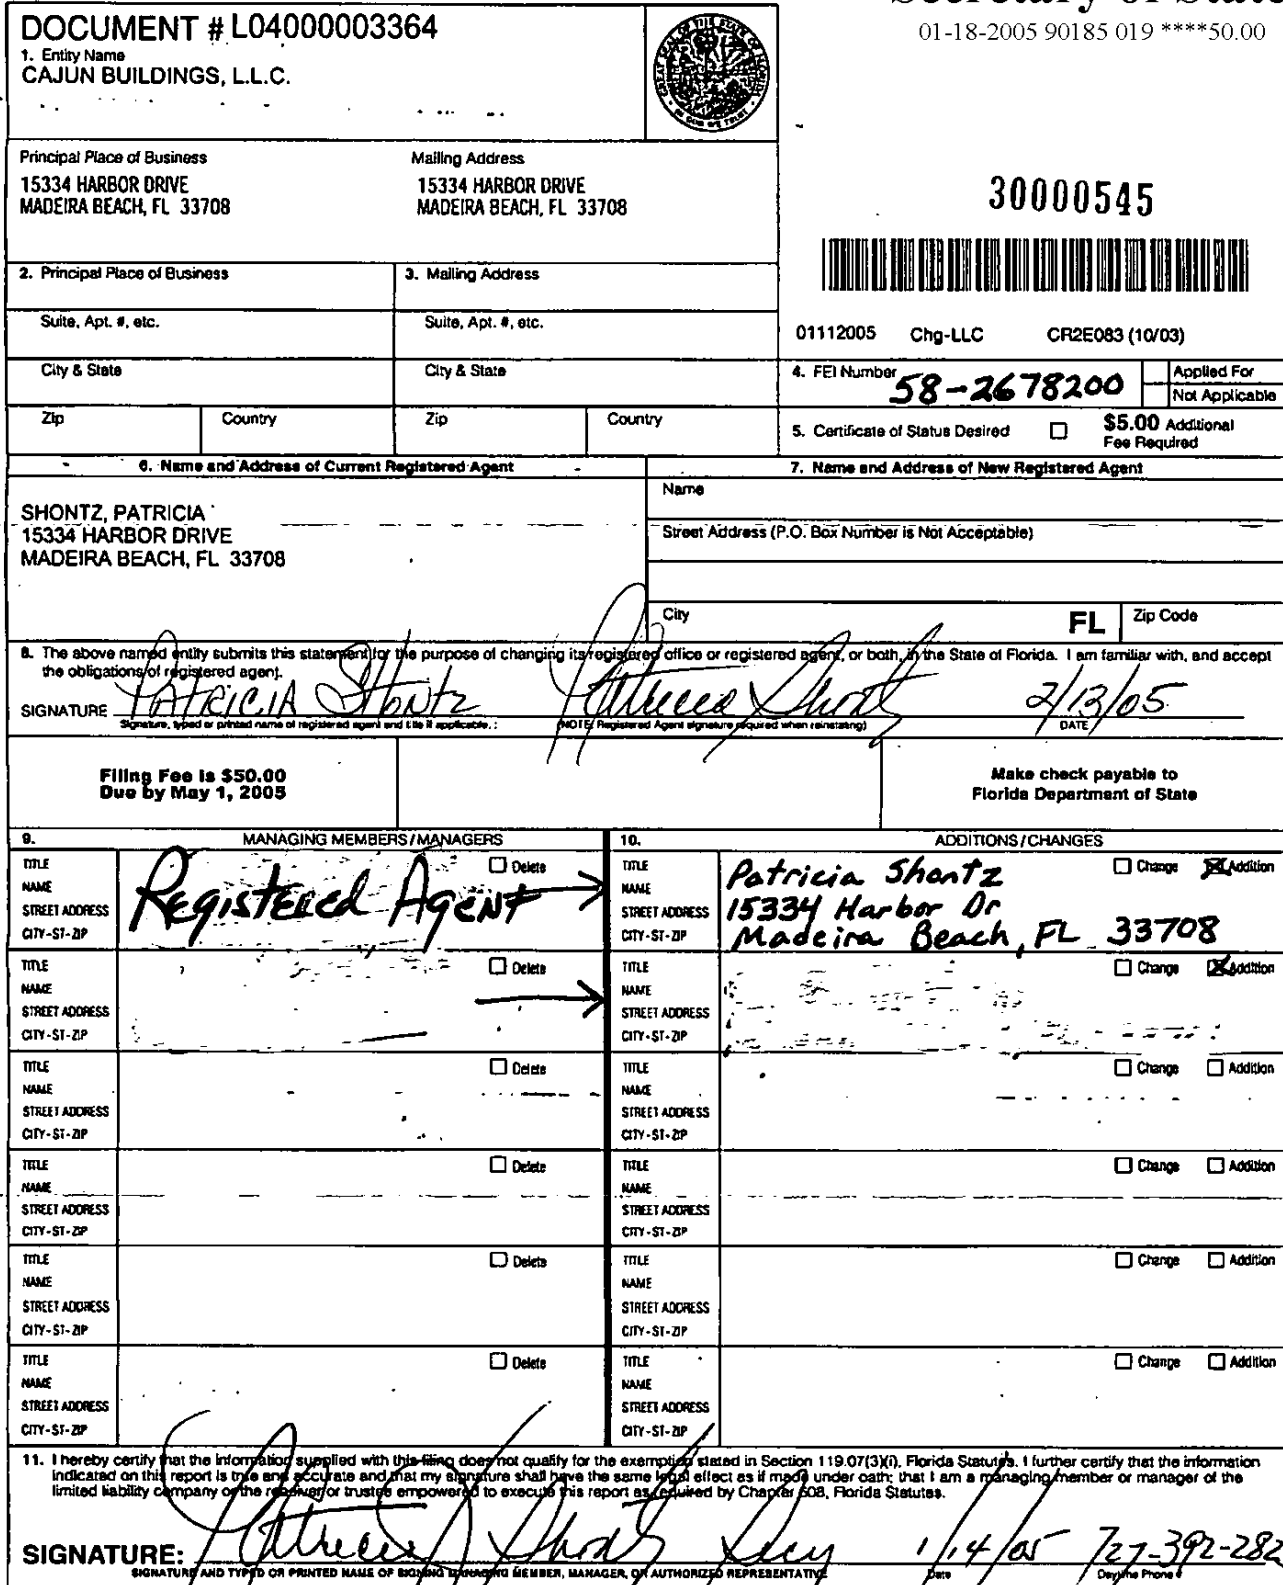 DOCUMENT # L04000003364
1. Entity Name
CAJUN BUILDINGS, L.L.C.
01-18-2005 90185 019 ****50.00
Principal Place of Business
15334 HARBOR DRIVE
MADEIRA BEACH, FL 33708
Mailing Address
15334 HARBOR DRIVE
MADEIRA BEACH, FL 33708
30000545
2. Principal Place of Business
3. Mailing Address
Suite, Apt. #, etc.
Suite, Apt. #, etc.
01112005 Chg-LLC CR2E083 (10/03)
City & State
City & State
4. FEI Number
58-2678200
Applied For
Not Applicable
Zip
Country
Zip
Country
5. Certificate of Status Desired
$5.00 Additional
Fee Required
6. Name and Address of Current Registered Agent
7. Name and Address of New Registered Agent
SHONTZ, PATRICIA
15334 HARBOR DRIVE
MADEIRA BEACH, FL 33708
Name
Street Address (P.O. Box Number is Not Acceptable)
City
FL
Zip Code
8. The above named entity submits this statement for the purpose of changing its registered office or registered agent, or both, in the State of Florida. I am familiar with, and accept
the obligations of registered agent.
SIGNATURE PATRICIA SHONTZ Patricia Shontz 2/13/05
Signature, typed or printed name of registered agent and title if applicable.
(NOTE: Registered Agent signature required when reinstating)
DATE
Filing Fee is $50.00
Due by May 1, 2005
Make check payable to
Florida Department of State
9. MANAGING MEMBERS/MANAGERS
10. ADDITIONS/CHANGES
TITLE
NAME
STREET ADDRESS
CITY-ST-ZIP
Registered Agent
Delete
TITLE
NAME
STREET ADDRESS
CITY-ST-ZIP
Patricia Shontz
15334 Harbor Dr
Madeira Beach, FL 33708
Change Addition
TITLE
NAME
STREET ADDRESS
CITY-ST-ZIP
Delete
TITLE
NAME
STREET ADDRESS
CITY-ST-ZIP
Change Addition
TITLE
NAME
STREET ADDRESS
CITY-ST-ZIP
Delete
TITLE
NAME
STREET ADDRESS
CITY-ST-ZIP
Change Addition
TITLE
NAME
STREET ADDRESS
CITY-ST-ZIP
Delete
TITLE
NAME
STREET ADDRESS
CITY-ST-ZIP
Change Addition
TITLE
NAME
STREET ADDRESS
CITY-ST-ZIP
Delete
TITLE
NAME
STREET ADDRESS
CITY-ST-ZIP
Change Addition
TITLE
NAME
STREET ADDRESS
CITY-ST-ZIP
Delete
TITLE
NAME
STREET ADDRESS
CITY-ST-ZIP
Change Addition
11. I hereby certify that the information supplied with this filing does not qualify for the exemption stated in Section 119.07(3)(i), Florida Statutes. I further certify that the information
indicated on this report is true and accurate and that my signature shall have the same legal effect as if made under oath; that I am a managing member or manager of the
limited liability company or the receiver or trustee empowered to execute this report as required by Chapter 608, Florida Statutes.
SIGNATURE: Patricia Shontz Secy 1/14/05 727-392-282
SIGNATURE AND TYPED OR PRINTED NAME OF SIGNING MANAGING MEMBER, MANAGER, OR AUTHORIZED REPRESENTATIVE
Date
Daytime Phone #